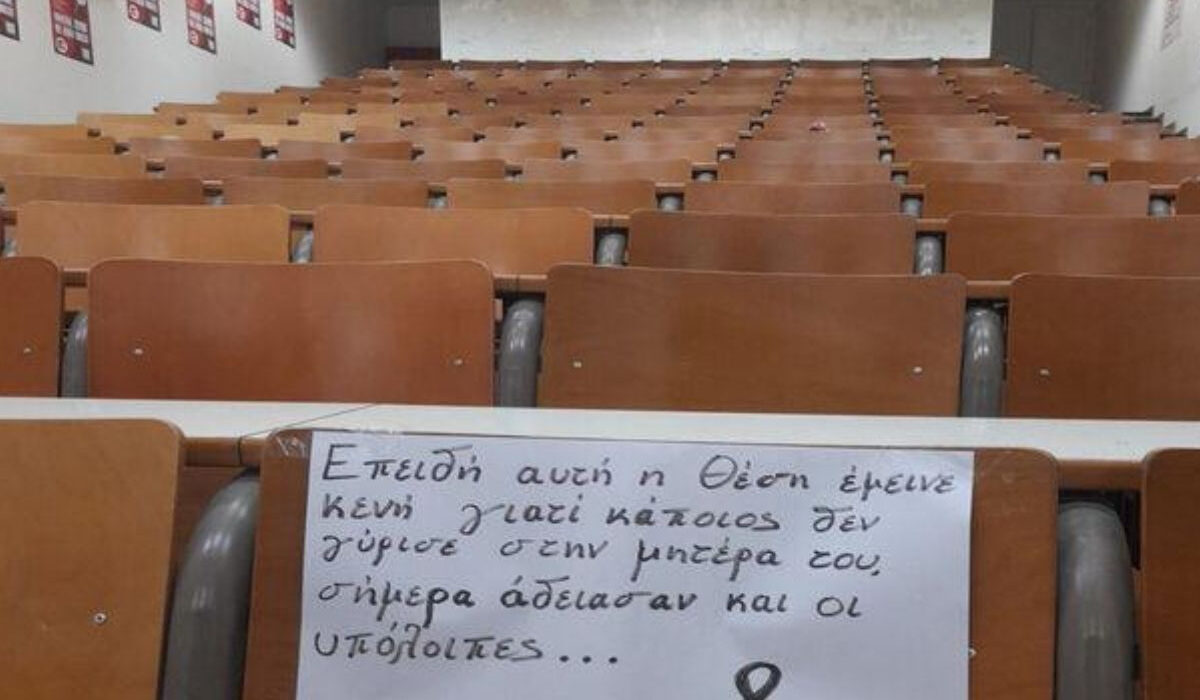 Επειδή αυτή η θέση έμεινε
κενή γιατί κάποιος δεν
γύρισε στην μητέρα του,
σήμερα άδειασαν και οι
υπόλοιπες...